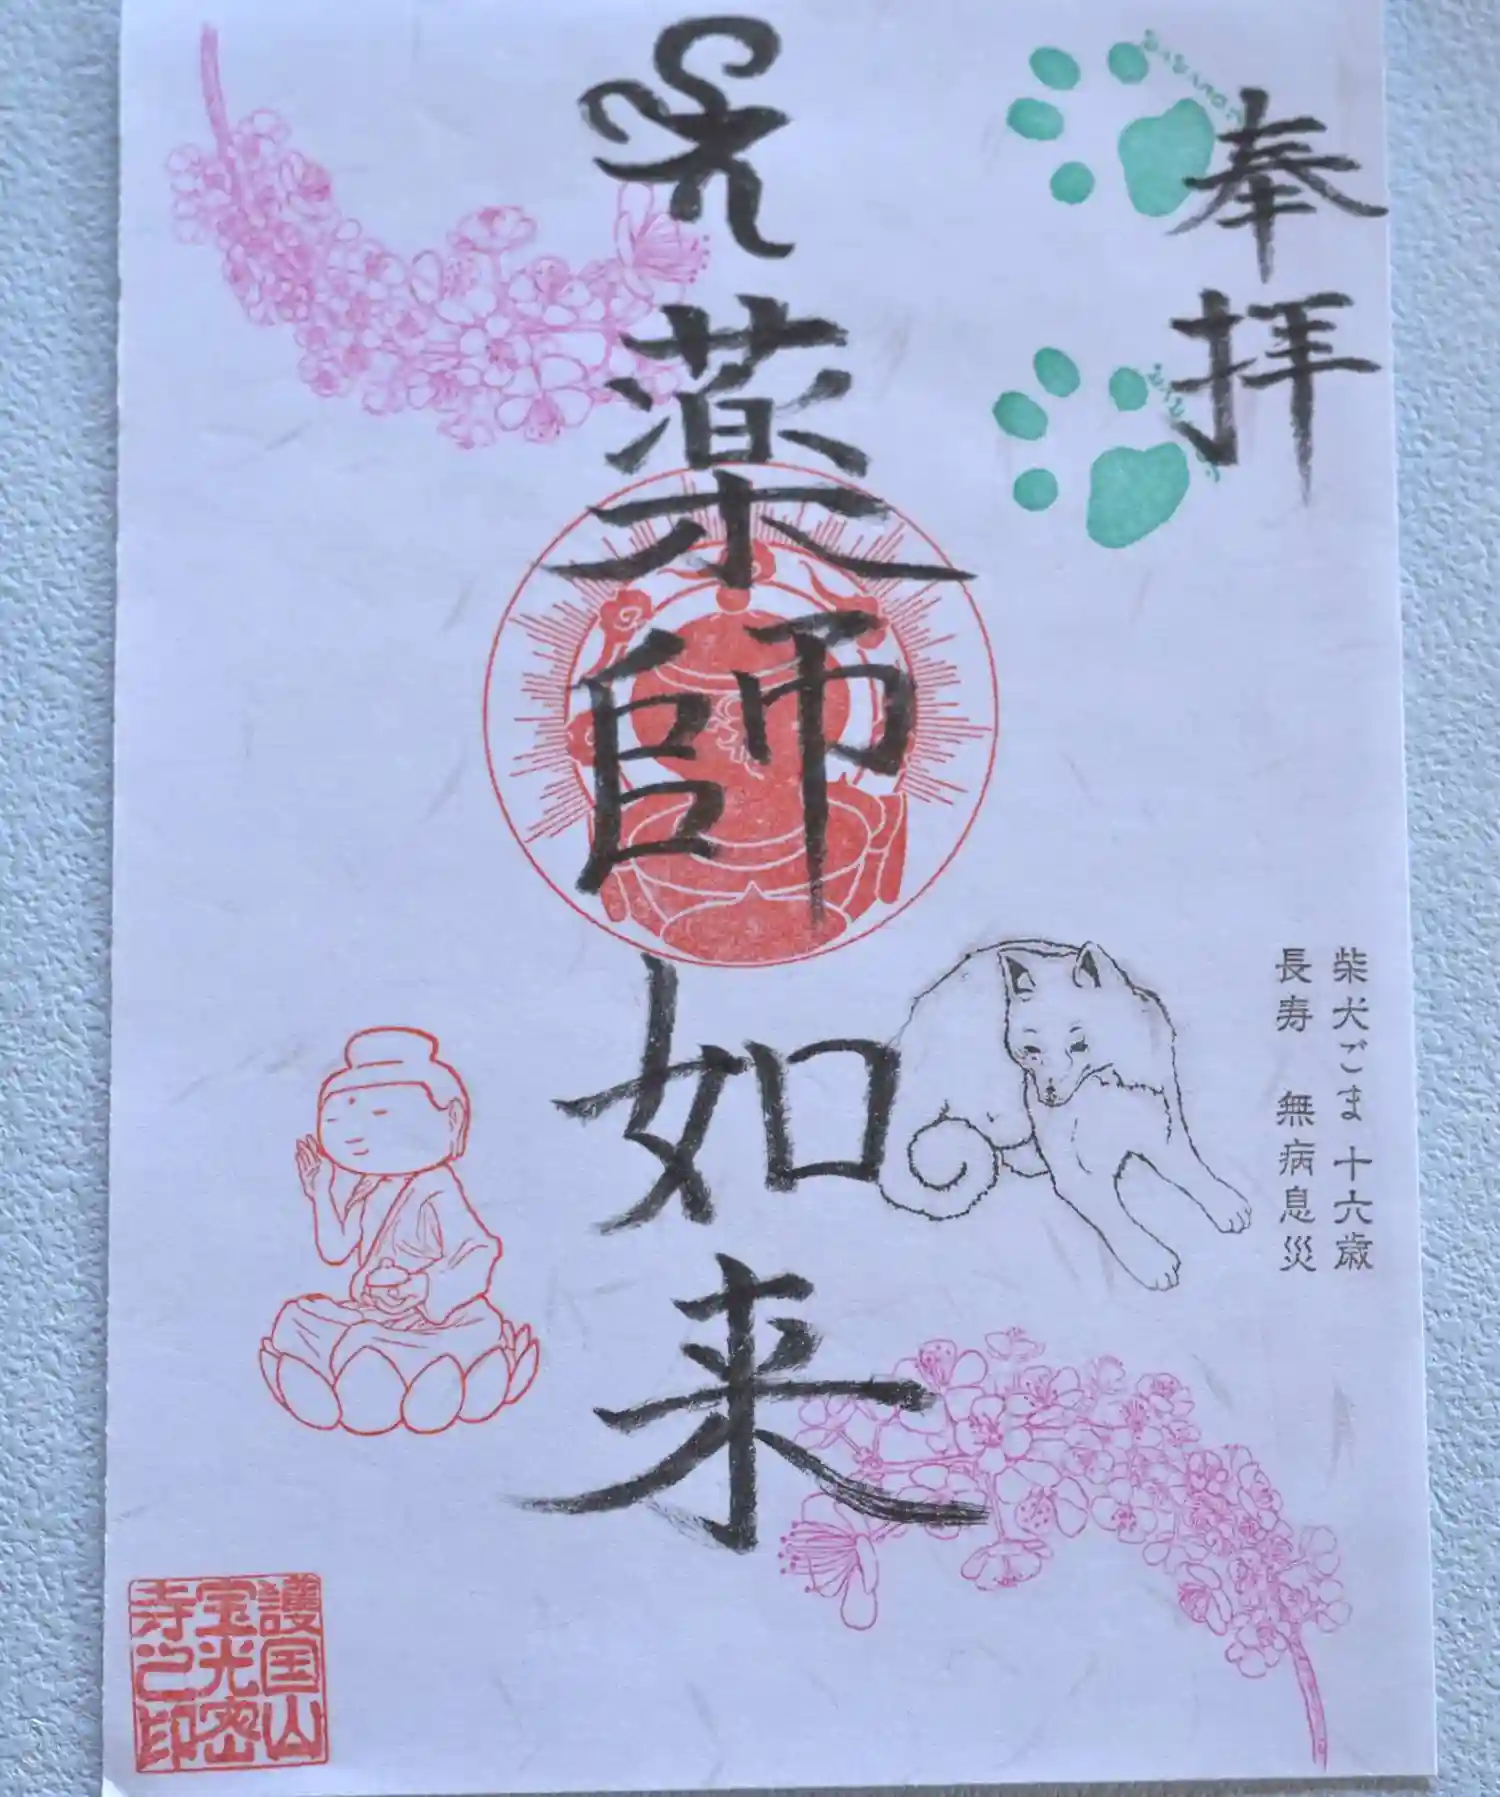 奉拝
薬師如来
柴犬ごま十六歳
長寿 無病息災
護国山
宝光密
寺之印